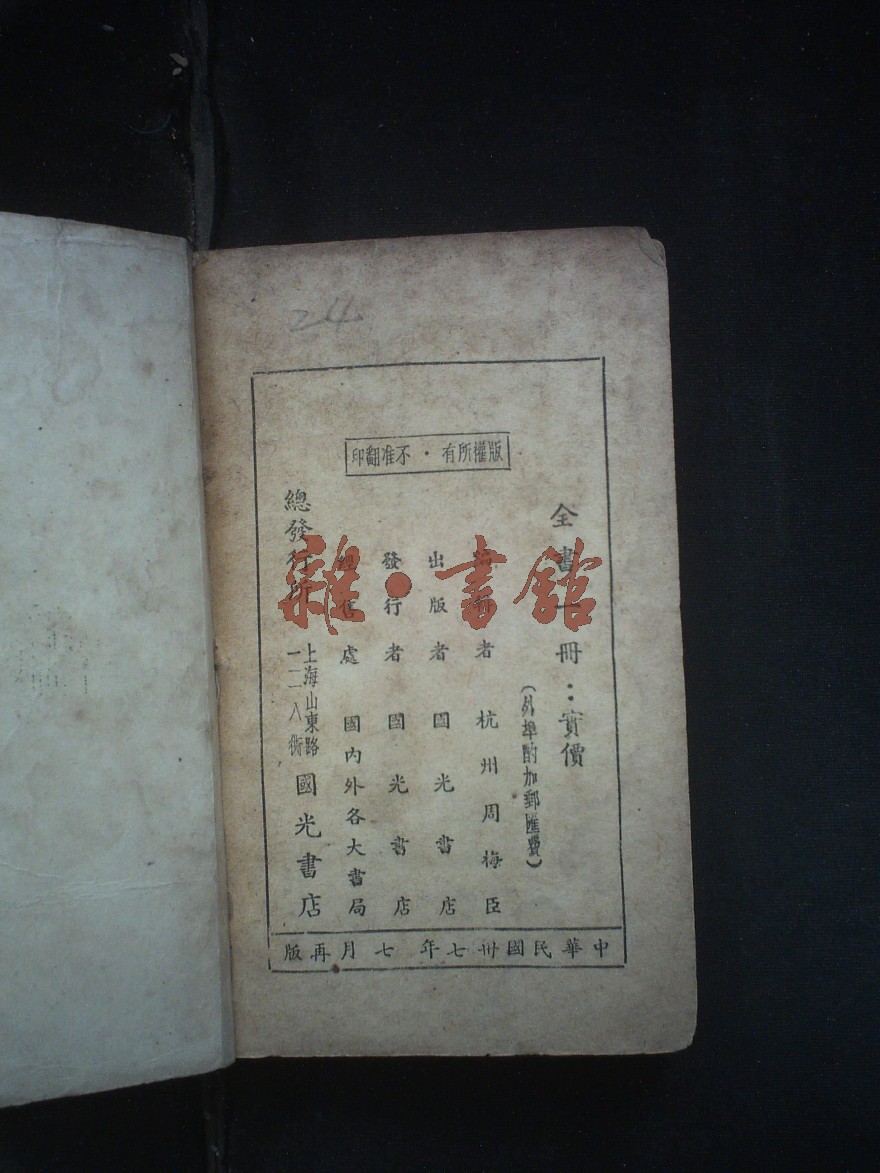 24
版權所有・不准翻印
全書一冊：實價
(外埠酌加郵匯費)
者 杭州周梅臣
出版者 國光書店
發行者 國光書店
處 國內外各大書局
總發行所 上海山東路
一二八衖
國光書店
中華民國卅七年七月再版
雜・書館